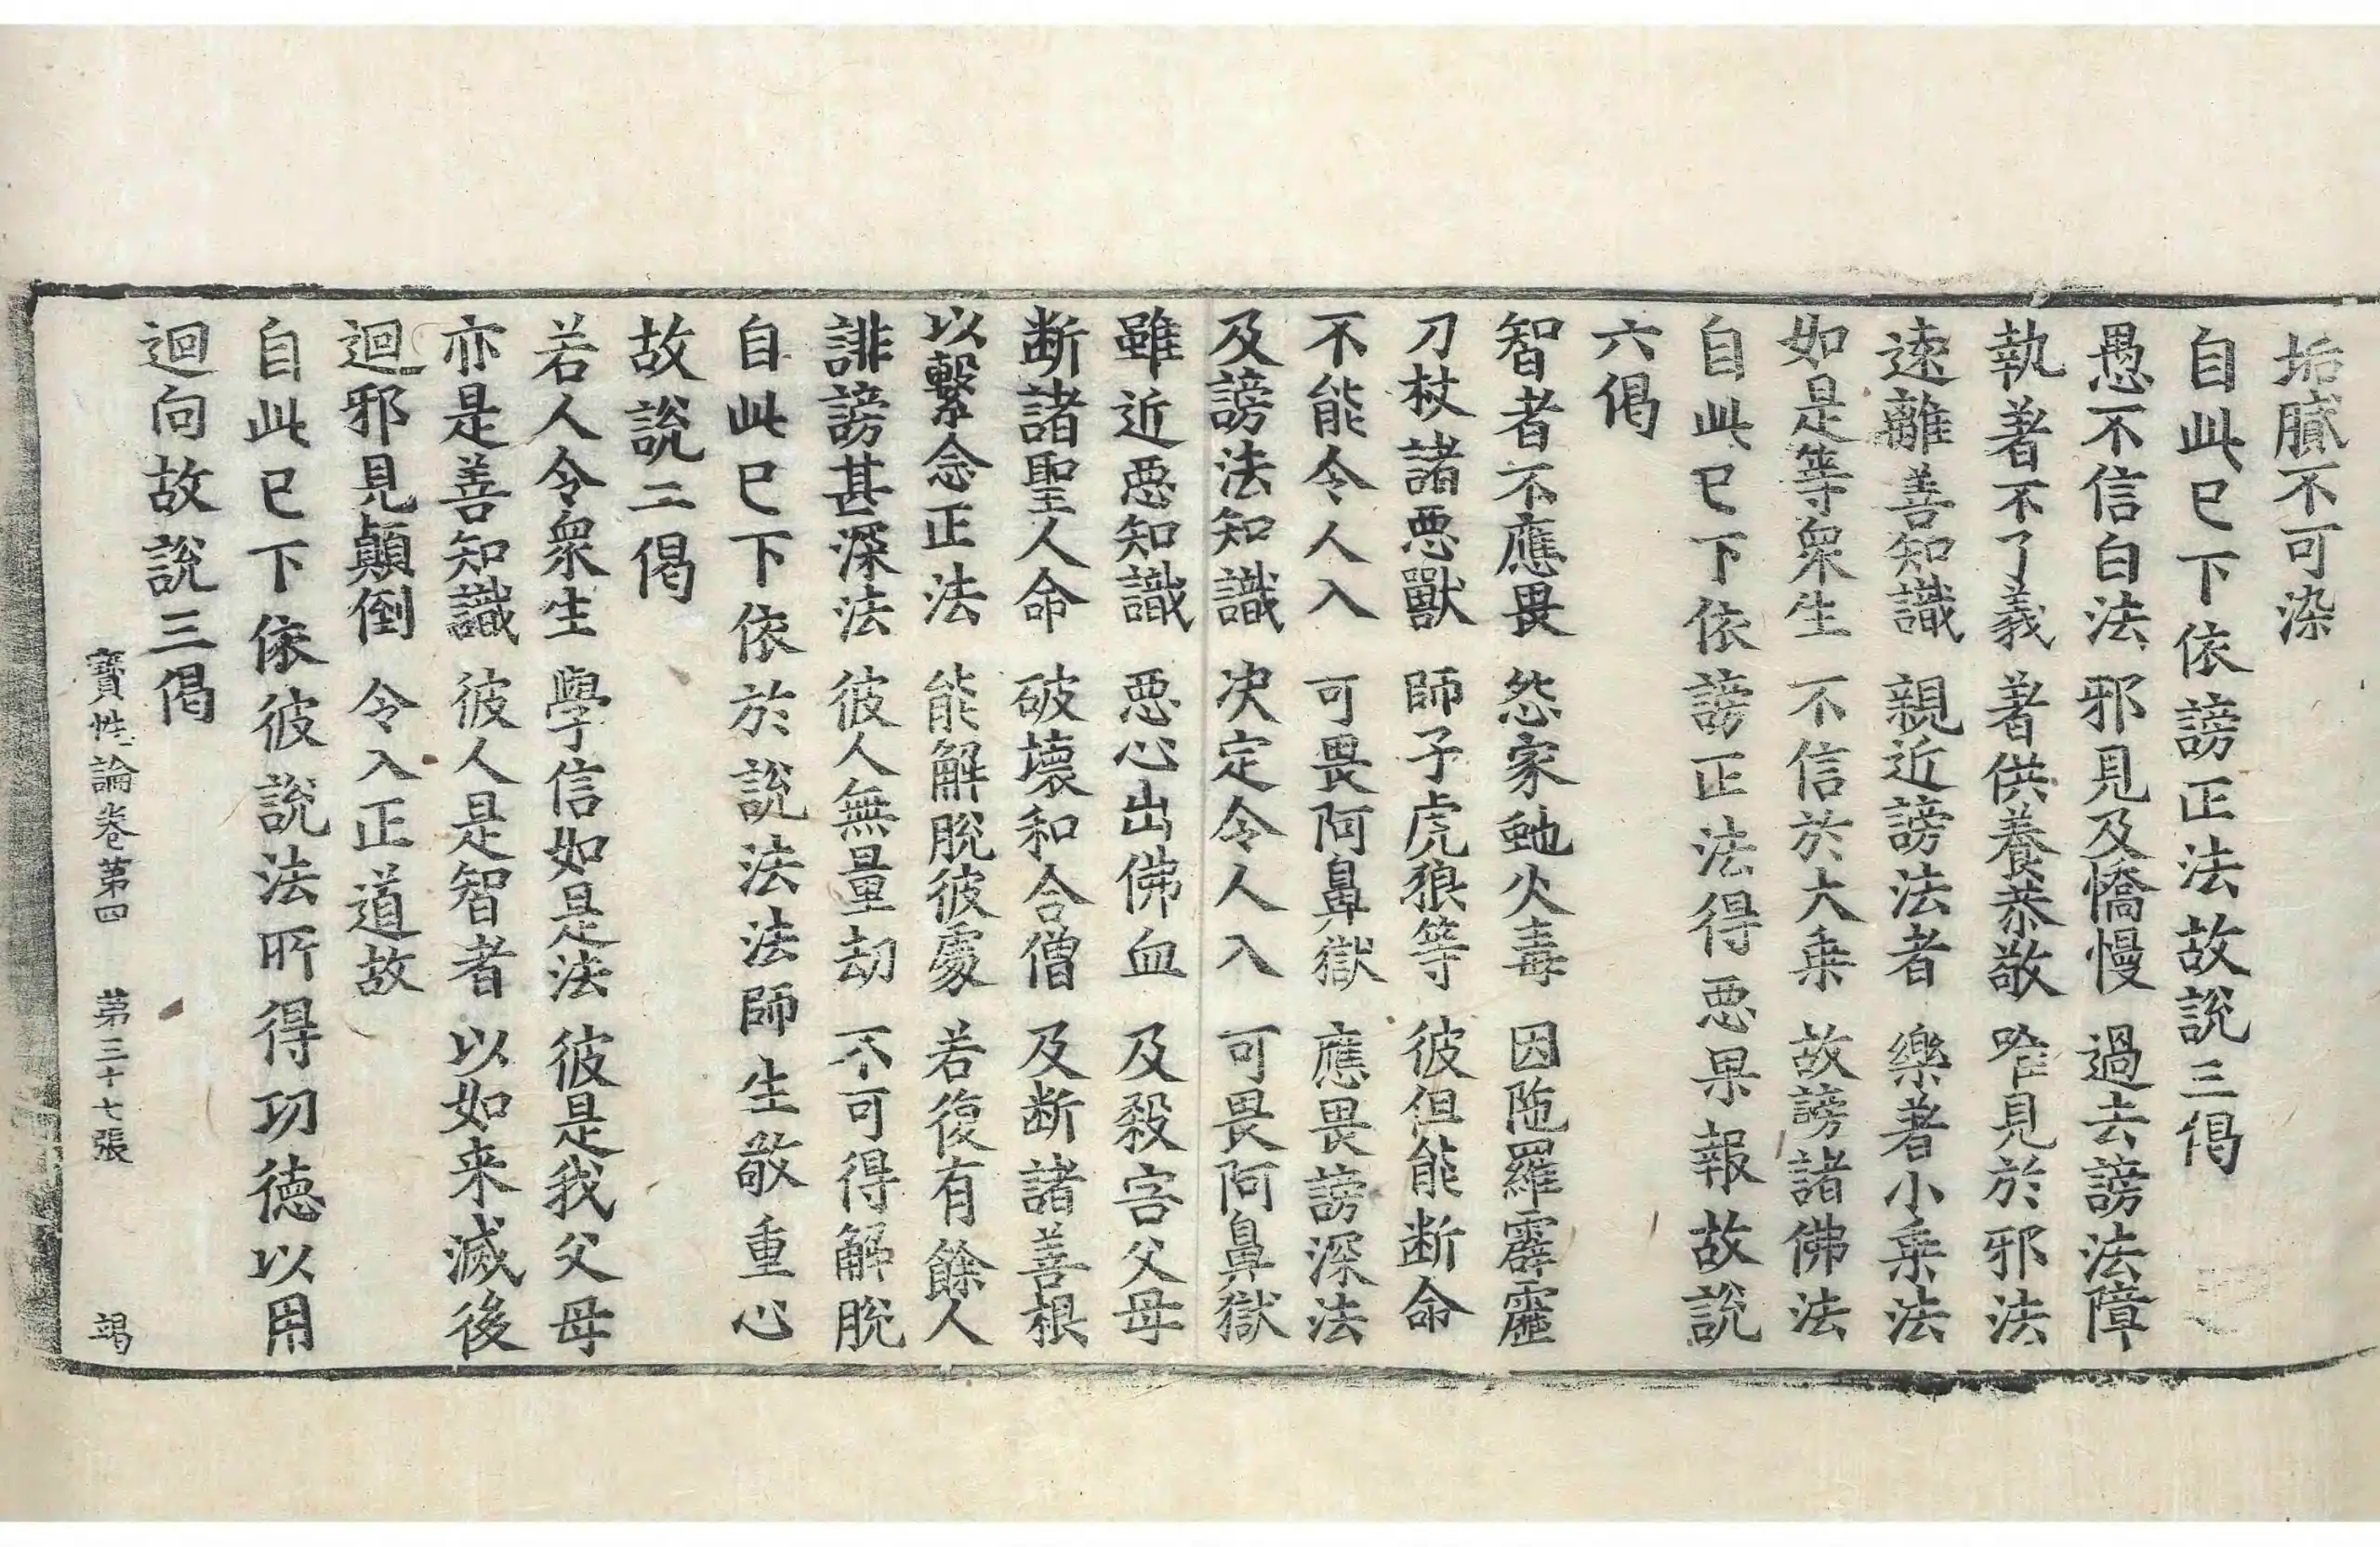 垢膩不可染
自此已下依謗正法故說三偈
愚不信白法　邪見及憍慢　過去謗法障
執著不了義　著供養恭敬　唯見於邪法
遠離善知識　親近謗法者　樂著小乗法
如是等衆生　不信於大乗　故謗諸佛法
自此已下依謗正法得惡果報故說
六偈
智者不應畏　怨家虵火毒　因陁羅霹靂
刀杖諸惡獸　師子虎狼等　彼但能断命
不能令人入　可畏阿鼻獄　應畏謗深法
及謗法知識　决定令人入　可畏阿鼻獄
雖近惡知識　惡心出佛血　及殺害父母
断諸聖人命　破壞和合僧　及断諸善根
以繫念正法　能解脫彼處　若復有餘人
誹謗甚深法　彼人無量劫　不可得解脫
自此已下依於說法法師生敬重心
故說二偈
若人令衆生　學信如是法　彼是我父母
亦是善知識　彼人是智者　以如来滅後
迴邪見顛倒　令入正道故
自此已下依彼說法所得功德以用
迴向故說三偈
寳性論卷第四　第三十七張　竭